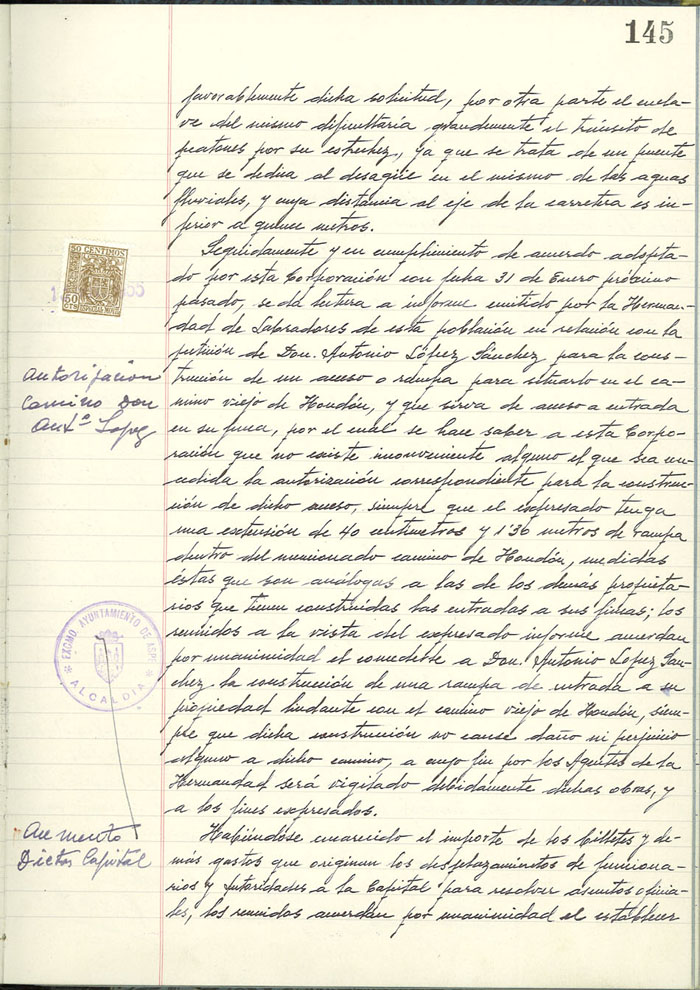 145
favorablemente dicha solicitud, por otra parte el encla-
ve del mismo dificultaría grandemente el tránsito de
peatones por su estrechez, ya que se trata de un puente
que se dedica al desagüe en el mismo de las aguas
fluviales, y cuya distancia al eje de la carretera es in-
ferior a quince metros.
Seguidamente y en cumplimiento de acuerdo adopta-
do por esta Corporación con fecha 31 de Enero próximo
pasado, se da lectura a informe emitido por la Herman-
dad de Labradores de esta población en relación con la
petición de Don. Antonio López Sánchez, para la cons-
trucción de un acceso o rampa para situarlo en el ca-
mino viejo de Hondón, y que sirva de acceso a entrada
en su finca, por el cual se hace saber a esta Corpo-
ración que no existe inconveniente alguno el que sea con-
cedida la autorización correspondiente para la construc-
ción de dicho acceso, siempre que el expresado tenga
una extensión de 40 centímetros y 1'36 metros de rampa
dentro del mencionado camino de Hondón, medidas
éstas que son análogas a las de los demás propieta-
rios que tienen construídas las entradas a sus fincas; los
reunidos a la vista del expresado informe acuerdan
por unanimidad el concederle a Don. Antonio Lopez Sán-
chez la construcción de una rampa de entrada a su
propiedad lindante con el camino viejo de Hondón, siem-
pre que dicha construcción no cause daño ni perjuicio
alguno a dicho camino, a cuyo fin por los Agentes de la
Hermandad será vigilado debidamente dichas obras, y
a los fines expresados.
Habiéndose encarecido el importe de los billetes y de-
más gastos que originan los desplazamientos de funciona-
rios y Autoridades a la Capital para resolver asuntos oficia-
les, los reunidos acuerdan por unanimidad el establecer
50 CENTIMOS
50
CTS
ESPECIAL MOVIL
Autorización
Camino Don
Antº Lopez
EXCMO AYUNTAMIENTO DE ASPE
ALCALDIA
Aumento
Dietas Capital